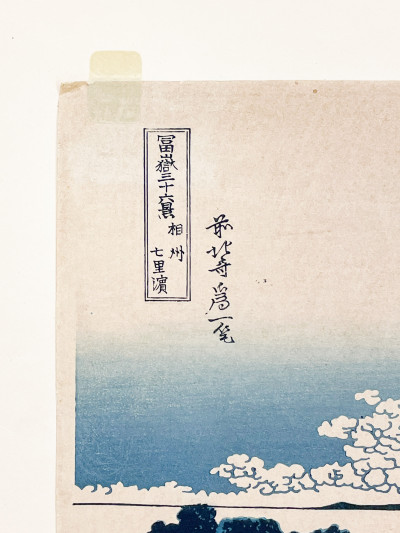 冨嶽三十六景
相州
七里濱
前北斎為一笔